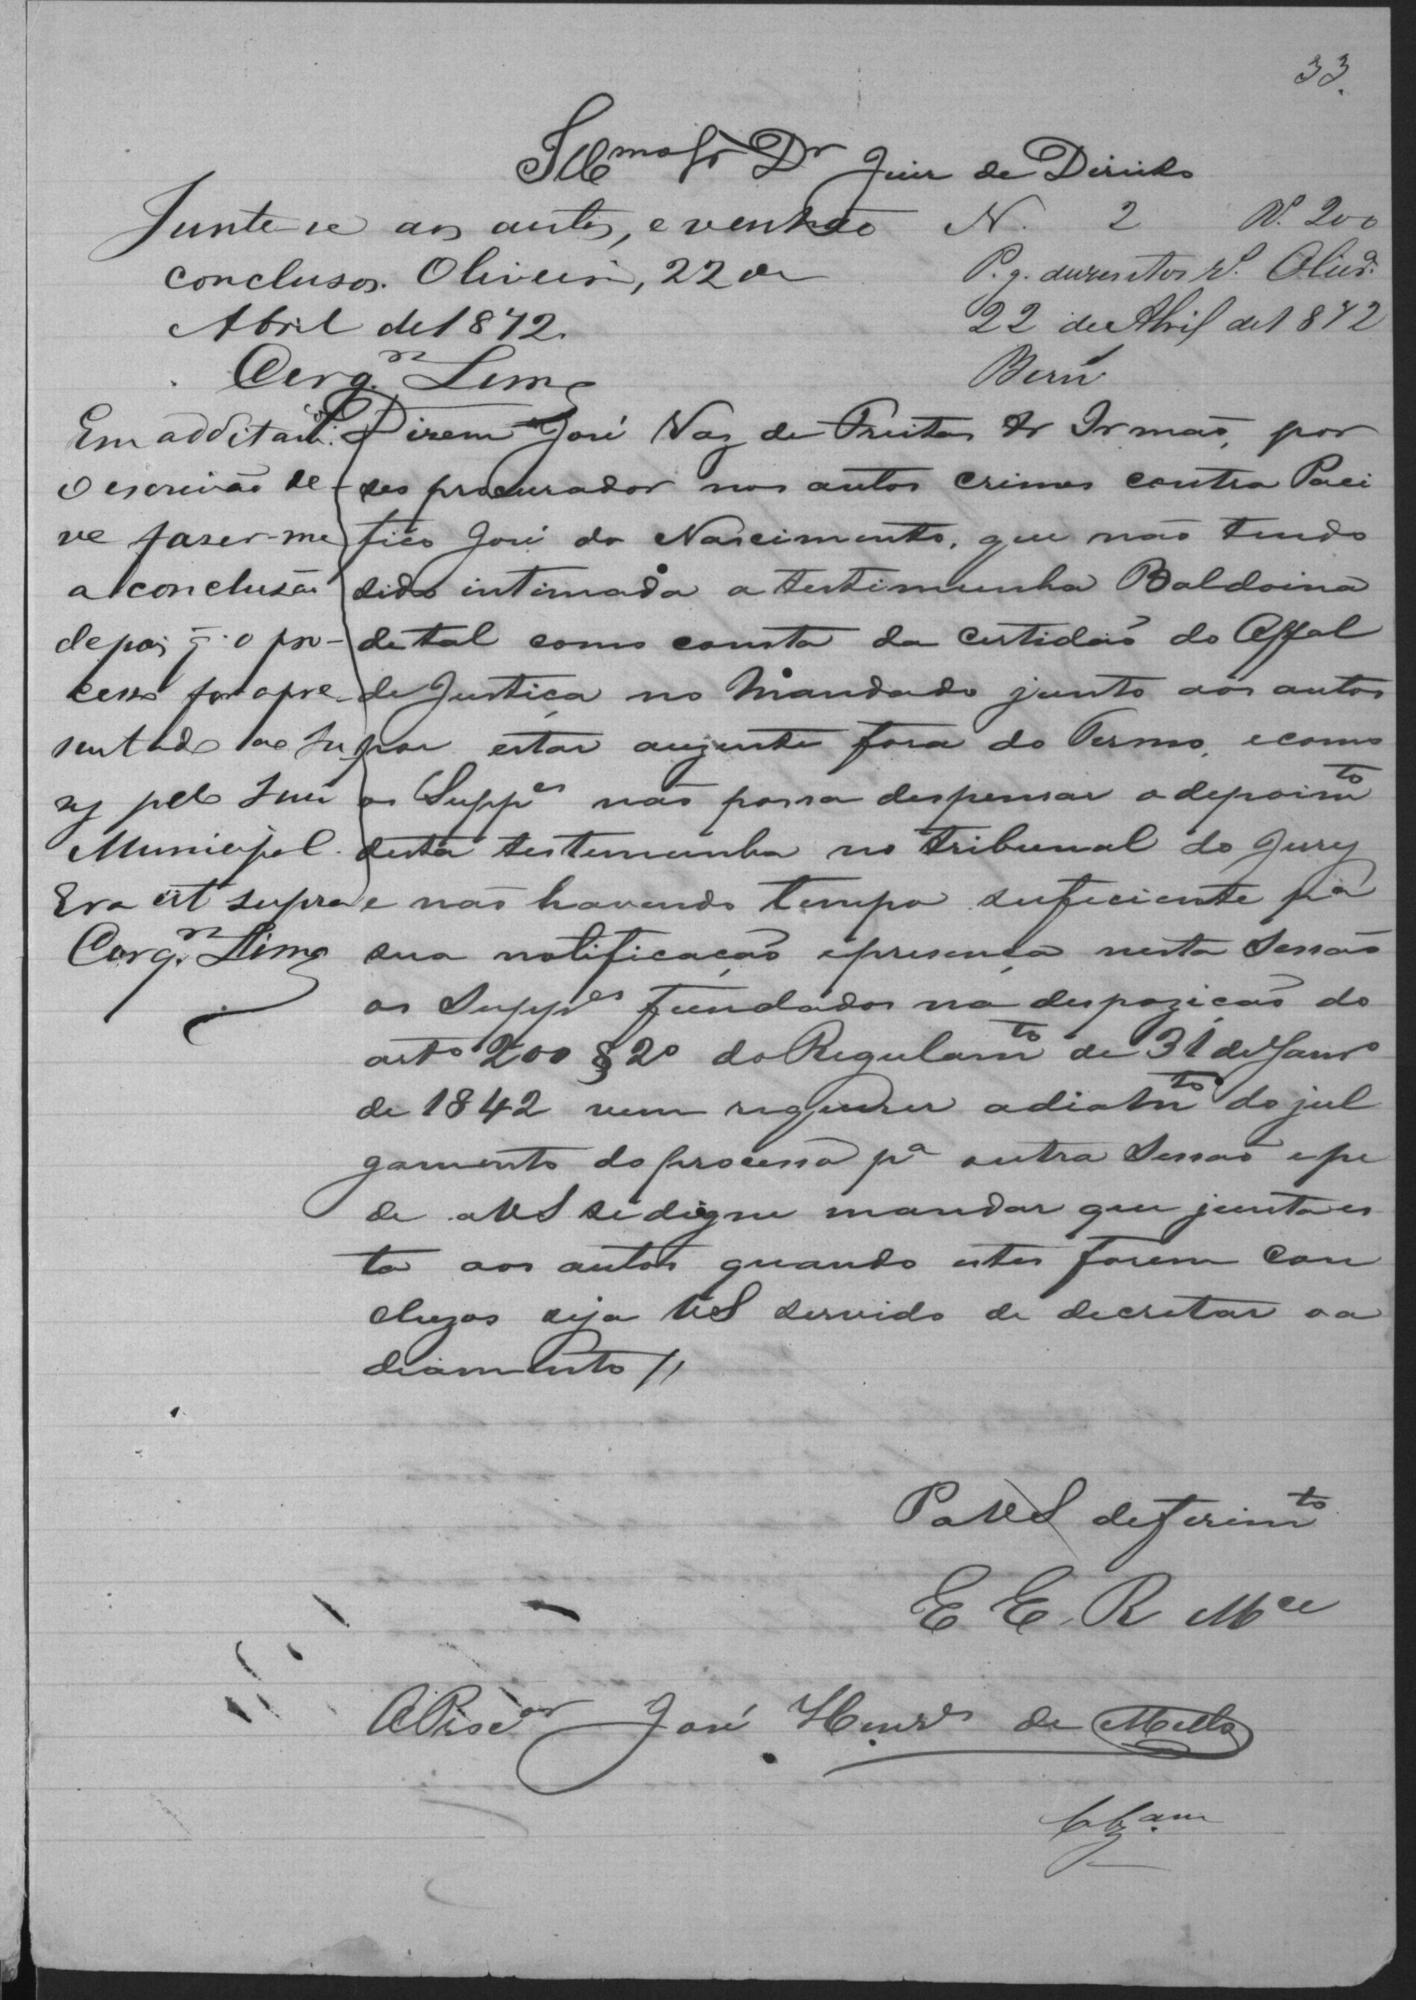 33.
Illmo Sr Dr Juiz de Direito
Junte-se aos autos, e venhão
conclusos. Oliveira, 22 de
Abril de 1872.
Cerqra Lima
N. 2 Rs. 200
P. g. duzentos rs. Olivra
22 de Abril de 1872
Em additamto
O escrivão de-
ve faser-me
a conclusão
depois q. o pro-
cesso for apre-
sentado ao Ju-
ry pelo Juiz
Municipal.
Era ut supra
Cerqra Lima
Dizem José Vaz de Freitas & Irmão, por
seo procurador nos autos crimes contra Paci
fico José do Nascimento, que não tendo
sido intimada a testimunha Balduina
de tal como consta da certidão do Offal
de Justiça no Mandado junto aos autos
por estar auzente fora do Termo, e como
os Suppes não possa despensar o depoimto
desta testemunha no tribunal do Jury
e não havendo tempo suficiente pa
sua notificação e presença nesta Sessão
os Suppes fundados na despozição do
arto 200 § 2o do Regulamto de 31 de Janro
de 1842 vem requerer adiamto do jul
gamento do processo pa outra Sessão e pe
de a VS se digne mandar que junta es
ta aos autos quando estes forem con
cluzos seja VS servido de decretar o a
diamento //
Pa VS deferimto
E. E. R. Mce
José Henrs de Mello